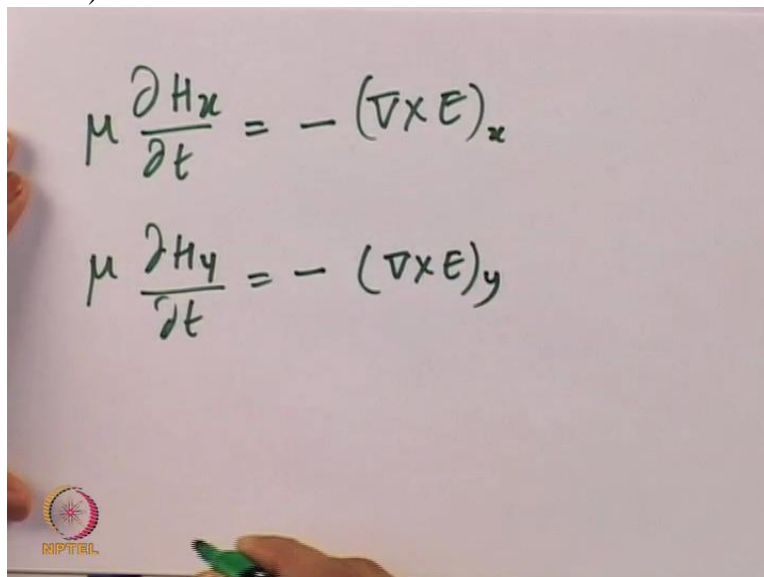 )
μ ∂Hx/∂t = - (∇×E)x
μ ∂Hy/∂t = - (∇×E)y
NPTEL